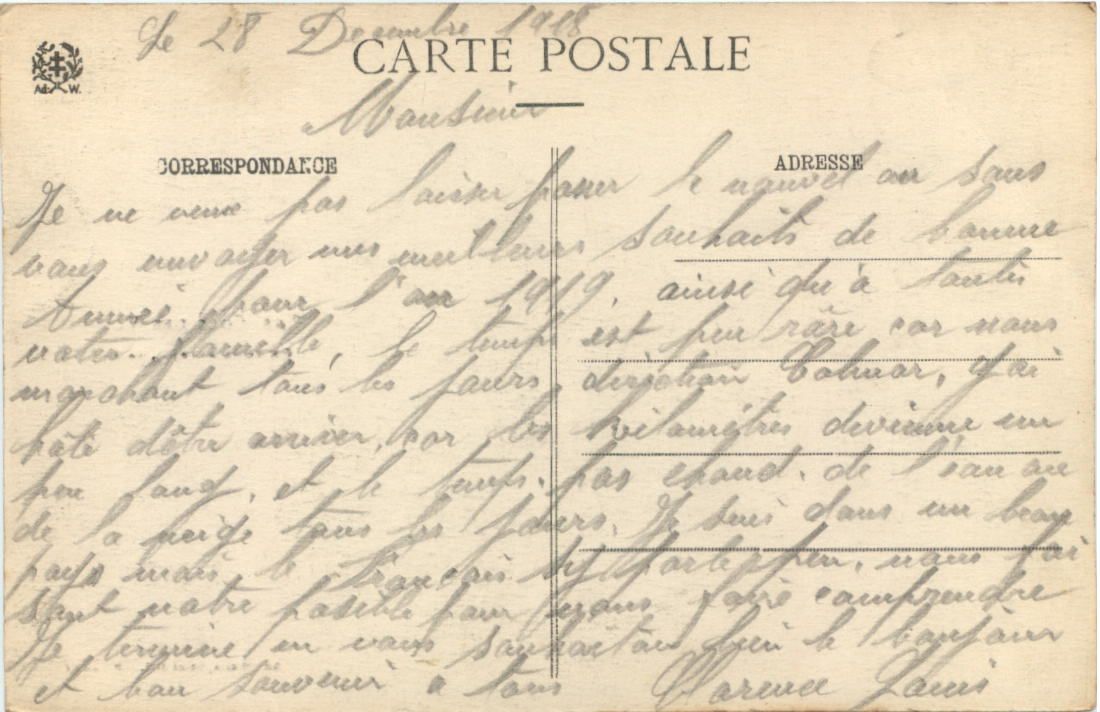 Le 28 Decembre 1918
CARTE POSTALE
Ad. W.
Monsieur
CORRESPONDANCE
ADRESSE
Je ne veux pas laisser passer le nouvel an sans
vous envoyer mes meilleurs souhaits de bonne
Année pour l'an 1919, ainsi qu'à toute
votre famille, le temps est peu râre car nous
marchant tous les jours, direction Colmar, j'ai
hâte d'être arriver, car les kilomètres devienne un
peu long, et le temps pas chaud, de l'eau ou
de la neige tous les jours. Je suis dans un beau
pays mais le Francais s'y parle peu, nous fai
sont notre posible pour nous faire comprendre
Je termine en vous souhaitan bien le bonjour
et bon souvenir a tous Clarence Louis